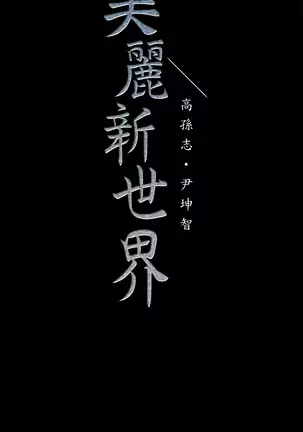 美麗新世界
高孫志·尹坤智